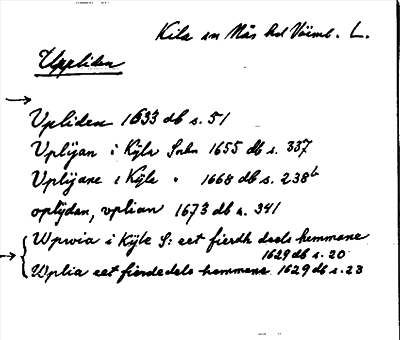 Kila sn Näs hd Värml. L.
Uppliden
Upliden 1633 db s. 51
Uplijan i Kijla Sokn 1655 db s. 337
Uplijane i Kijle " 1668 db s. 238b
oplijdan, uplian 1673 db s. 341
Upwia i Kijle S: ett fierdh deels hemmane
1629 db s. 20
Uplia eet fierdedels hemmane 1629 db s. 23